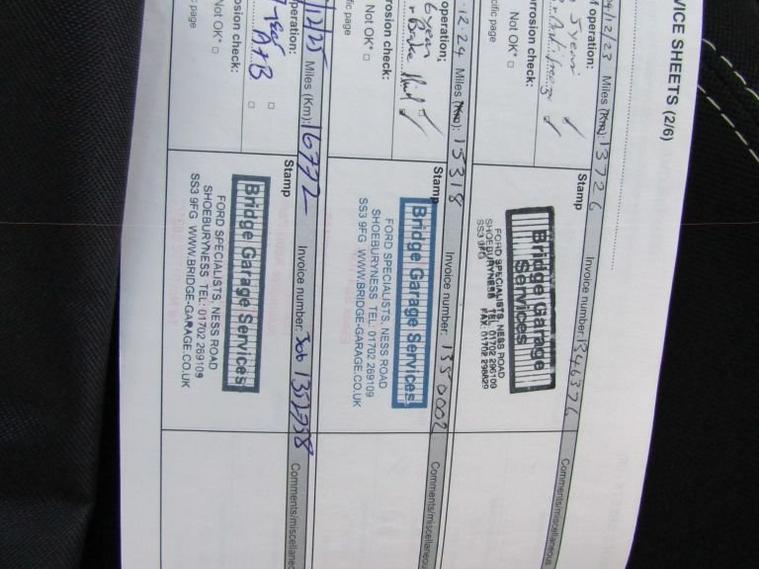 VICE SHEETS (2/6)
/12/23 Miles (Km): 13726 Invoice number:
f operation:
5 years
rrosion check:
Not OK* □
cific page
Stamp
Bridge Garage
Services
FORD SPECIALISTS, NESS ROAD
SHOEBURYNESS
SS3 9FG
Comments/miscellaneous
-12.24 Miles (Km): 15318 Invoice number: 1350002
operation:
6 years
+ Brake fluid
rosion check:
Not OK* □
fic page
Stamp
Bridge Garage Services
FORD SPECIALISTS, NESS ROAD
SHOEBURYNESS TEL: 01702 269109
SS3 9FG WWW.BRIDGE-GARAGE.CO.UK
Comments/miscellaneous
/12/25 Miles (Km): 16772 Invoice number: Job
peration:
osion check:
Not OK* □
c page
Stamp
Bridge Garage Services
FORD SPECIALISTS, NESS ROAD
SHOEBURYNESS TEL: 01702 269109
SS3 9FG WWW.BRIDGE-GARAGE.CO.UK
Comments/miscellaneous